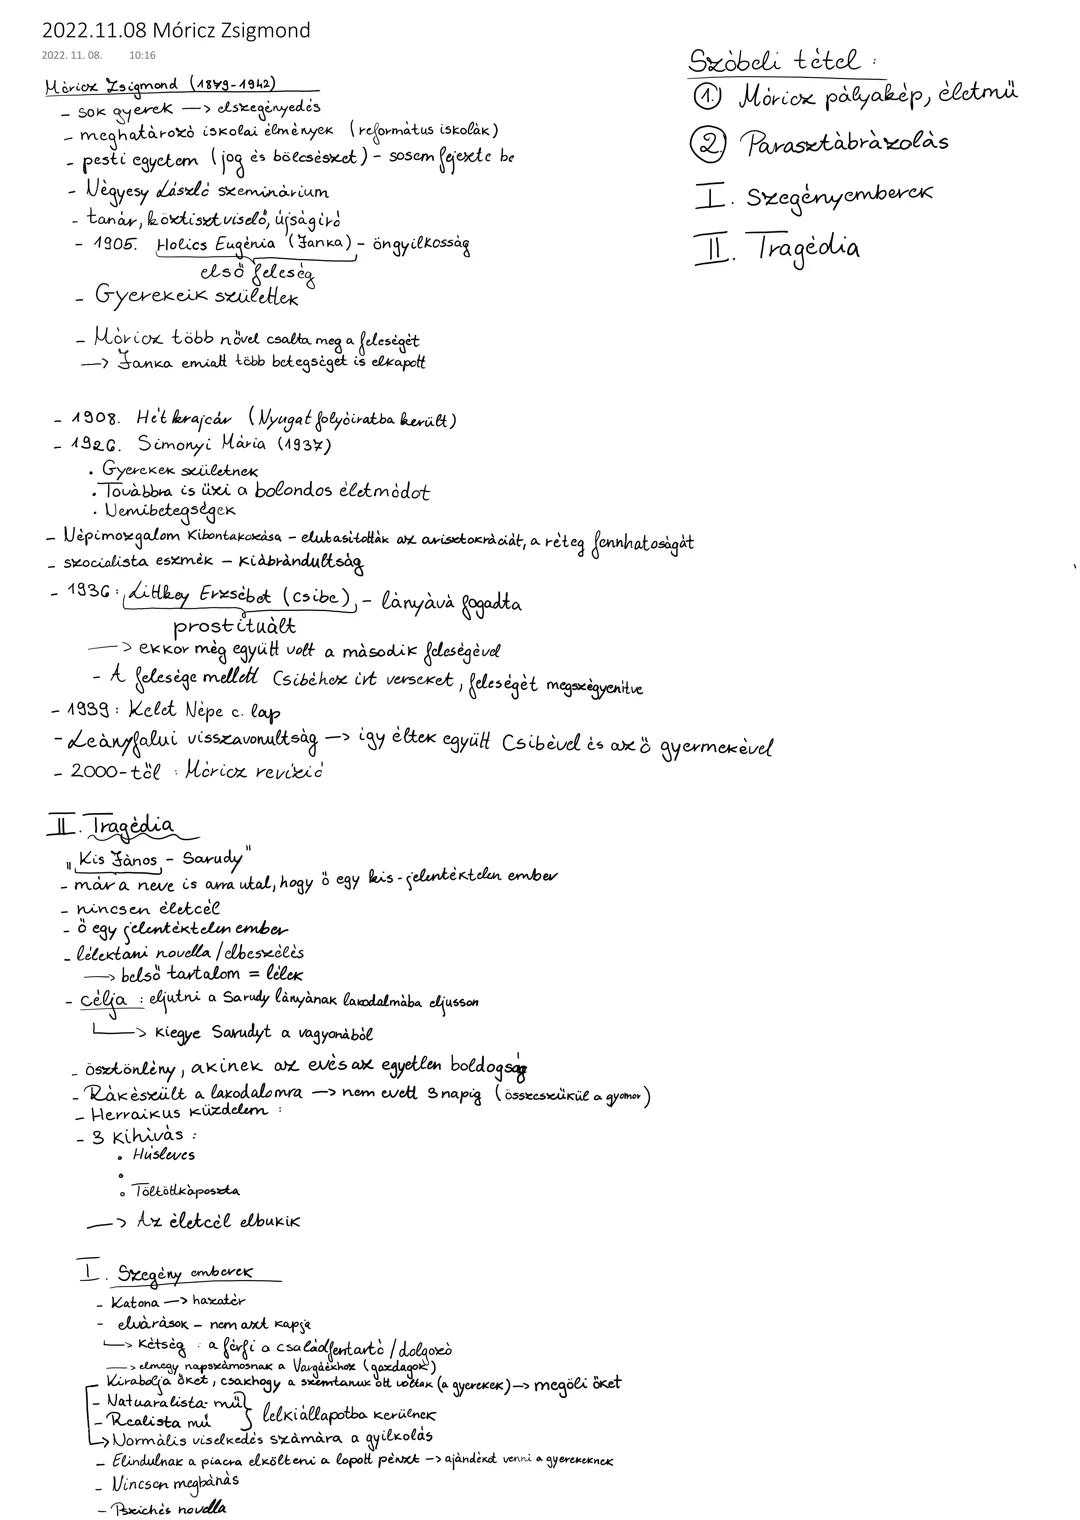 2022.11.08 Móricz Zsigmond
2022. 11. 08. 10:16
Móricz Zsigmond (1879-1942)
- sok gyerek —> elszegényedés
- meghatározó iskolai élmények (református iskolák)
- pesti egyetem (jog és bölcsészet) - sosem fejezte be
- Négyesy László szeminárium
- tanár, köztisztviselő, újságíró
- 1905. Holics Eugénia (Janka) - öngyilkosság
első feleség
- Gyerekeik születtek
- Móricz több nővel csalta meg a feleségét
—> Janka emiatt több betegséget is elkapott
- 1908. Hét krajcár (Nyugat folyóiratba került)
- 1926. Simonyi Mária (1937)
• Gyerekek születnek
• Továbbra is űzi a bolondos életmódot
• Nemibetegségek
- Népimozgalom kibontakozása - elutasították az arisztokráciát, a réteg fennhatóságát
- szocialista eszmék - kiábrándultság
- 1936: Littkey Erzsébet (csibe), - lányává fogadta
prostituált
—> ekkor még együtt volt a második feleségével
- A felesége mellett Csibéhez írt verseket, feleségét megszégyenítve
- 1939: Kelet Népe c. lap
- Leányfalui visszavonultság —> így éltek együtt Csibével és az ő gyermekével
- 2000-től : Móricz revízió
Szóbeli tétel :
1. Móricz pályakép, életmű
2. Parasztábrázolás
I. Szegényemberek
II. Tragédia
II. Tragédia
"Kis János - Sarudy"
- már a neve is arra utal, hogy ő egy kis-jelentéktelen ember
- nincsen életcél
- ő egy jelentéktelen ember
- lélektani novella/elbeszélés
—> belső tartalom = lélek
- célja : eljutni a Sarudy lányának lakodalmába eljusson
—> kiegye Sarudyt a vagyonából
- ösztönlény, akinek az evés az egyetlen boldogság
- Rákészült a lakodalomra —> nem evett 3 napig (összeszűkül a gyomor)
- Herraikus küzdelem :
- 3 kihívás :
• Húsleves
•
• Töltöttkáposzta
—> Az életcél elbukik
I. Szegény emberek
- Katona —> hazatér
- elvárások - nem azt kapja
—> kétség : a férfi a családfentartó/dolgozó
—> elmegy napszámosnak a Vargáékhoz (gazdagok)
- Kirabolja őket, csakhogy a szemtanuk ott voltak (a gyerekek) —> megöli őket
- Natuaralista mű
- Realista mű } lelkiállapotba kerülnek
—> Normális viselkedés számára a gyilkolás
- Elindulnak a piacra elkölteni a lopott pénzt —> ajándékot venni a gyerekeknek
- Nincsen megbánás
- Pszichés novella